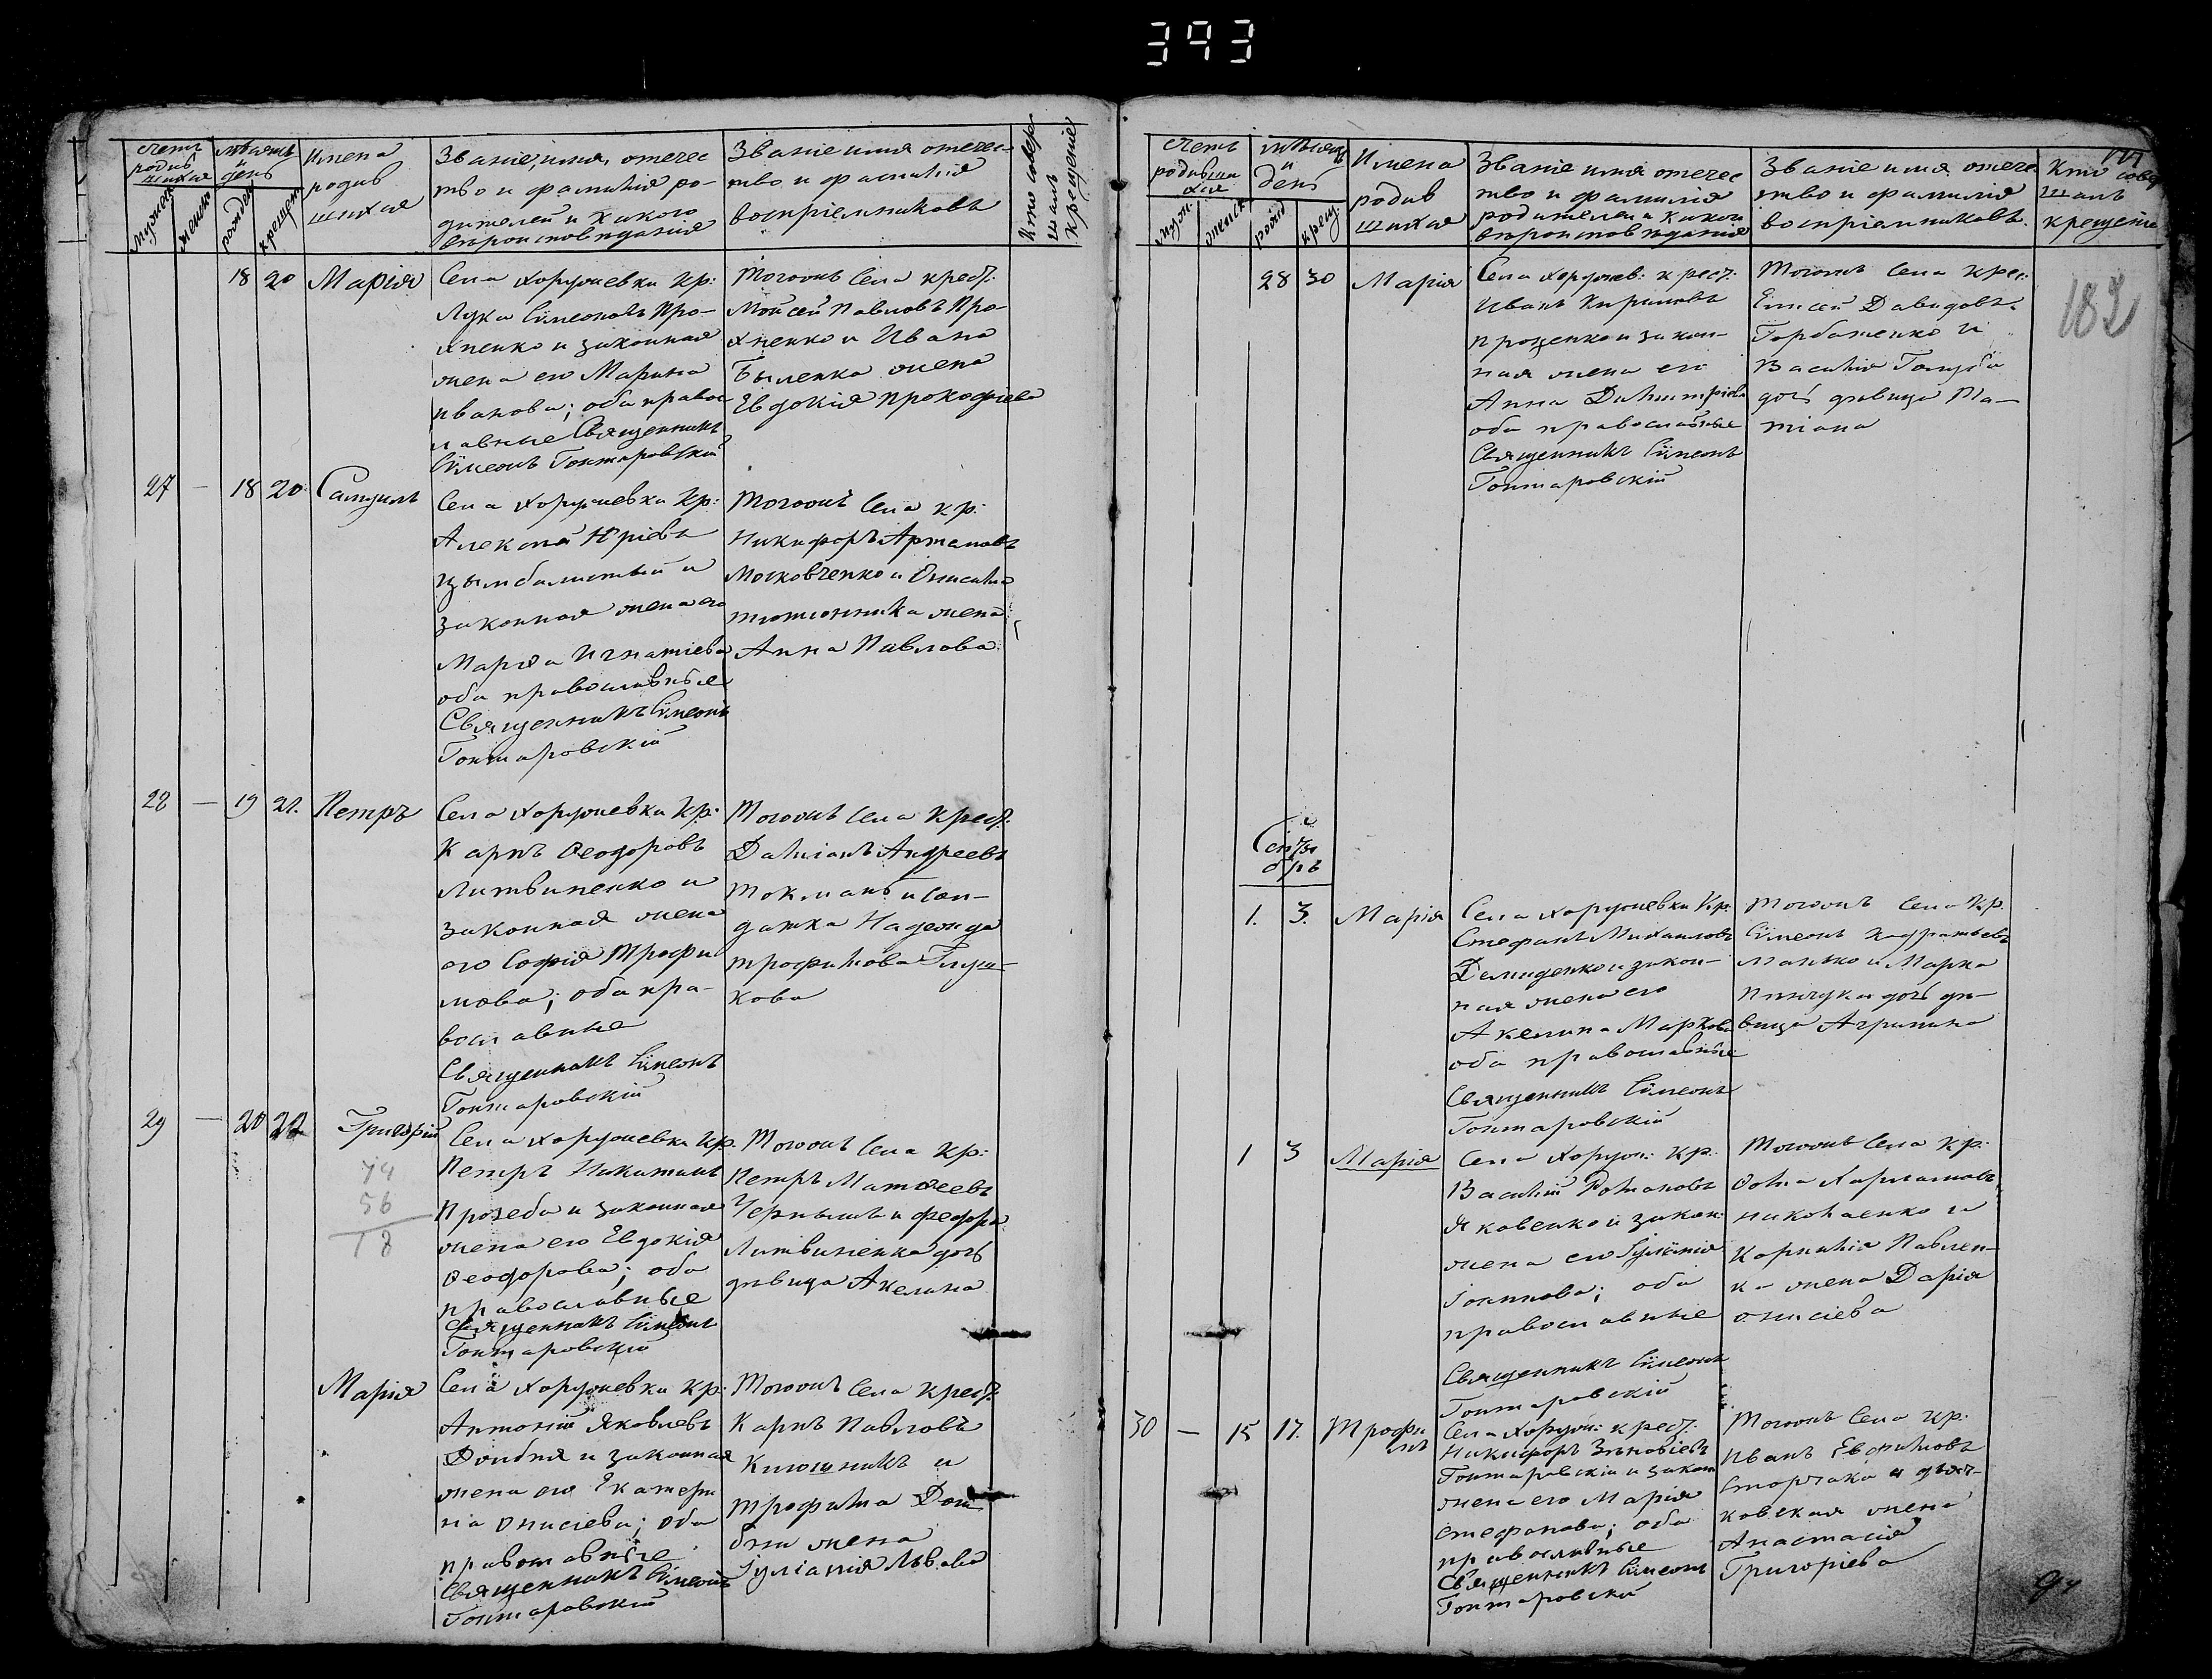 393
Счетъ родив шихся
мѣсяцъ и день
Имена родив шихся
Званіе, имя, отечес
тво и фамилія ро-
дителей и какого
вѣроисповѣданія
Званіе имя отечес-
тво и фамилія
воспріемниковъ
Кто совер-
шалъ
крещеніе
мужеск
женско
рожден
крещен
18 20 Марія
Села Хоружевки кр:
Лука Сѵмеоновъ Про-
хненко и законная
жена его Марина
Иванова; оба правос
лавные Священникъ
Сѵмеонъ Гонтаровскій
Тогожъ Села крест:
Мойсей Павловъ Про-
хненко и Ивана
Быленка жена
Евдокія Прокофіева
27 — 18 20 Самуилъ
Села Хоружевки кр:
Алексѣй Юріевъ
Цымбалистый и
законная жена его
Марѳа Игнатіева
оба православные
Священникъ Сѵмеонъ
Гонтаровскій
Тогожъ Села кр:
Никифоръ Артамовъ
Московченко и Онисима
Тютюнника жена
Анна Павлова
28 — 19 21. Петръ
Села Хоружевки кр:
Карпъ Ѳеодоровъ
Литвиненко и
законная жена
его Софія Трофи
мова; оба пра-
вославные
Священникъ Сѵмеонъ
Гонтаровскій
Тогожъ Села крест:
Даміанъ Андреевъ
Токмань и сол-
датка Надежда
Трофимова Глуш-
кова
29 — 20 22 Григорій
74
56
18
Села Хоружевки кр.
Петръ Никитинъ
Прозеба и законная
жена его Евдокія
Ѳеодорова; оба
православные
Священникъ Сѵмеонъ
Гонтаровскій
Тогожъ Села кр:
Петръ Матѳеевъ
Чернышъ и Федора
Литвиненка дочь
дѣвица Акелина
Марія
Села Хоружевки кр.
Антоній Яковлевъ
Долбня и законная
жена его Екатери
на Онисіева; оба
православные
Священникъ Сѵмеонъ
Гонтаровскій
Тогожъ Села крест:
Карпъ Павловъ
Клюшникъ и
Трофима Дол
бни жена
Іуліанія Львова
Счетъ родивши хся
мѣсяцъ и день
Имена родив шихся
Званіе имя отечес
тво и фамилія
родителей и какого
вѣроисповѣданія
Званіе имя отече-
тво и фамилія
воспріемниковъ.
Кто совер
шалъ
крещеніе
муж.
женск
рожд
крещ.
182
28 30 Марія
Села Хоружев: крест:
Иванъ Кириловъ
Прощенко и закон-
ная жена его
Анна Димитріева
оба православные
Священникъ Сѵмеонъ
Гонтаровскій
Тогожъ Села крес:
Елисей Давидовъ
Горбатенко и
Василія Голуба
дочь дѣвица Та-
тіана
Сентя
брь
1. 3. Марія
Села Хоружевки Кр:
Стефанъ Михаиловъ
Демиденко и закон-
ная жена его
Акелина Маркова
оба православные
Священникъ Сѵмеонъ
Гонтаровскій
Тогожъ Села Кр.
Сѵмеонъ Кодратьевъ
Манько и Марка
Пинчука дочь дѣ-
вица Агрипина
1 3 Марія
Села Хоруж: Кр:
Василій Романовъ
Яковенко и закон:
жена его Іуліанія
Іоаннова; оба
православные
Священникъ Сѵмеонъ
Гонтаровскій
Тогожъ Села кр:
Ѳома Харламповъ
Николаенко и
Корнилія Павлен-
ка жена Дарія
Онисіева
30 — 15 17. Трофи
мъ
Села Хоруж: крест:
Никифоръ Зѣновіевъ
Гонтаровскій и закон
жена его Марія
Стефанова; оба
православные
Священникъ Сѵмеонъ
Гонтаровскій
Тогожъ Села кр.
Иванъ Евфимовъ
Сторчака и дьяч-
ковская жена
Анастасія
Григоріева